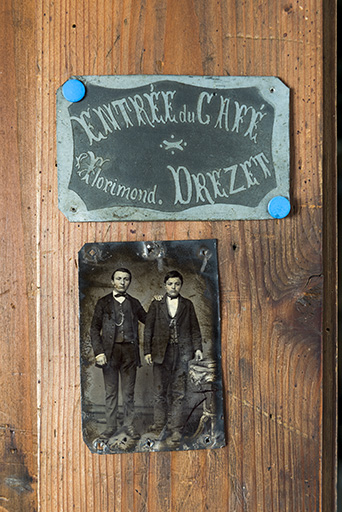 ENTRÉE du CAFÉ
Florimond. DREZET